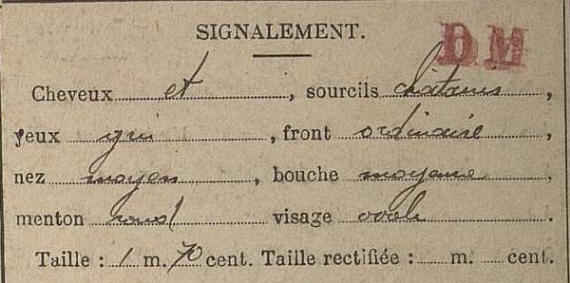 SIGNALEMENT.
DM
Cheveux et, sourcils châtains,
yeux gris, front ordinaire,
nez moyen, bouche moyenne,
menton rond visage ovale.
Taille : 1 m. 70 cent. Taille rectifiée : m. cent.